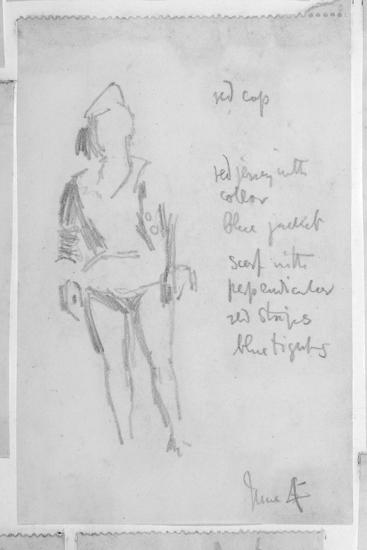 red cap
red jersey with
collar
blue jacket
scarf with
pependicular
red stripes
blue tights